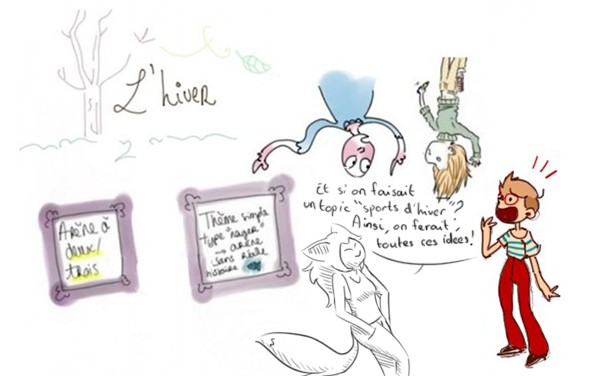 L'hiver
Et si on faisait
un topic "sports d'hiver"?
Ainsi, on ferait
toutes ces idées!
Arène à
deux/
trois
Thème simple
type "nager"
→ arène
sans réelle
histoire